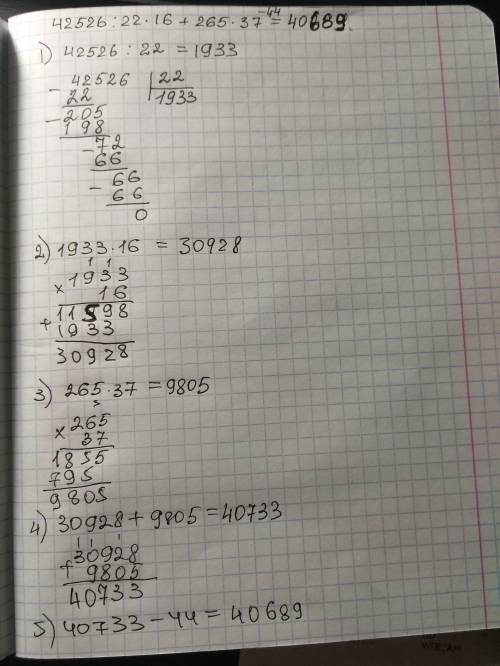 42526 : 22 · 16 + 265 · 37 - 44 = 40689.
1) 42526 : 22 = 1933
- 42526 | 22
22 1933
- 205
198
- 72
66
- 66
66
0
2) 1933 · 16 = 30928
1 1
× 1933
16
+ 11598
1933
30928
3) 265 · 37 = 9805
3
× 265
37
1855
795
9805
4) 30928 + 9805 = 40733
1 1 1
+ 30928
9805
40733
5) 40733 - 44 = 40689